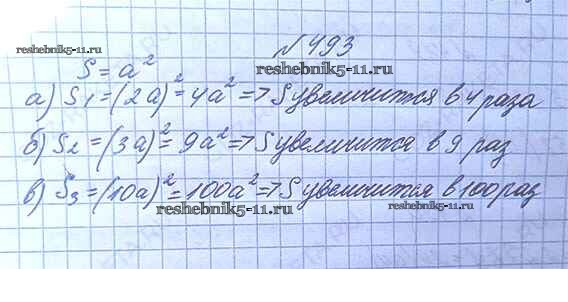 reshebnik5-11.ru
№ 493
reshebnik5-11.ru
S = a²
а) S₁ = (2a)² = 4a² => S увеличится в 4 раза
б) S₂ = (3a)² = 9a² => S увеличится в 9 раз
в) S₃ = (10a)² = 100a² => S увеличится в 100 раз
reshebnik5-11.ru
reshebnik5-11.ru
reshebnik5-11.ru